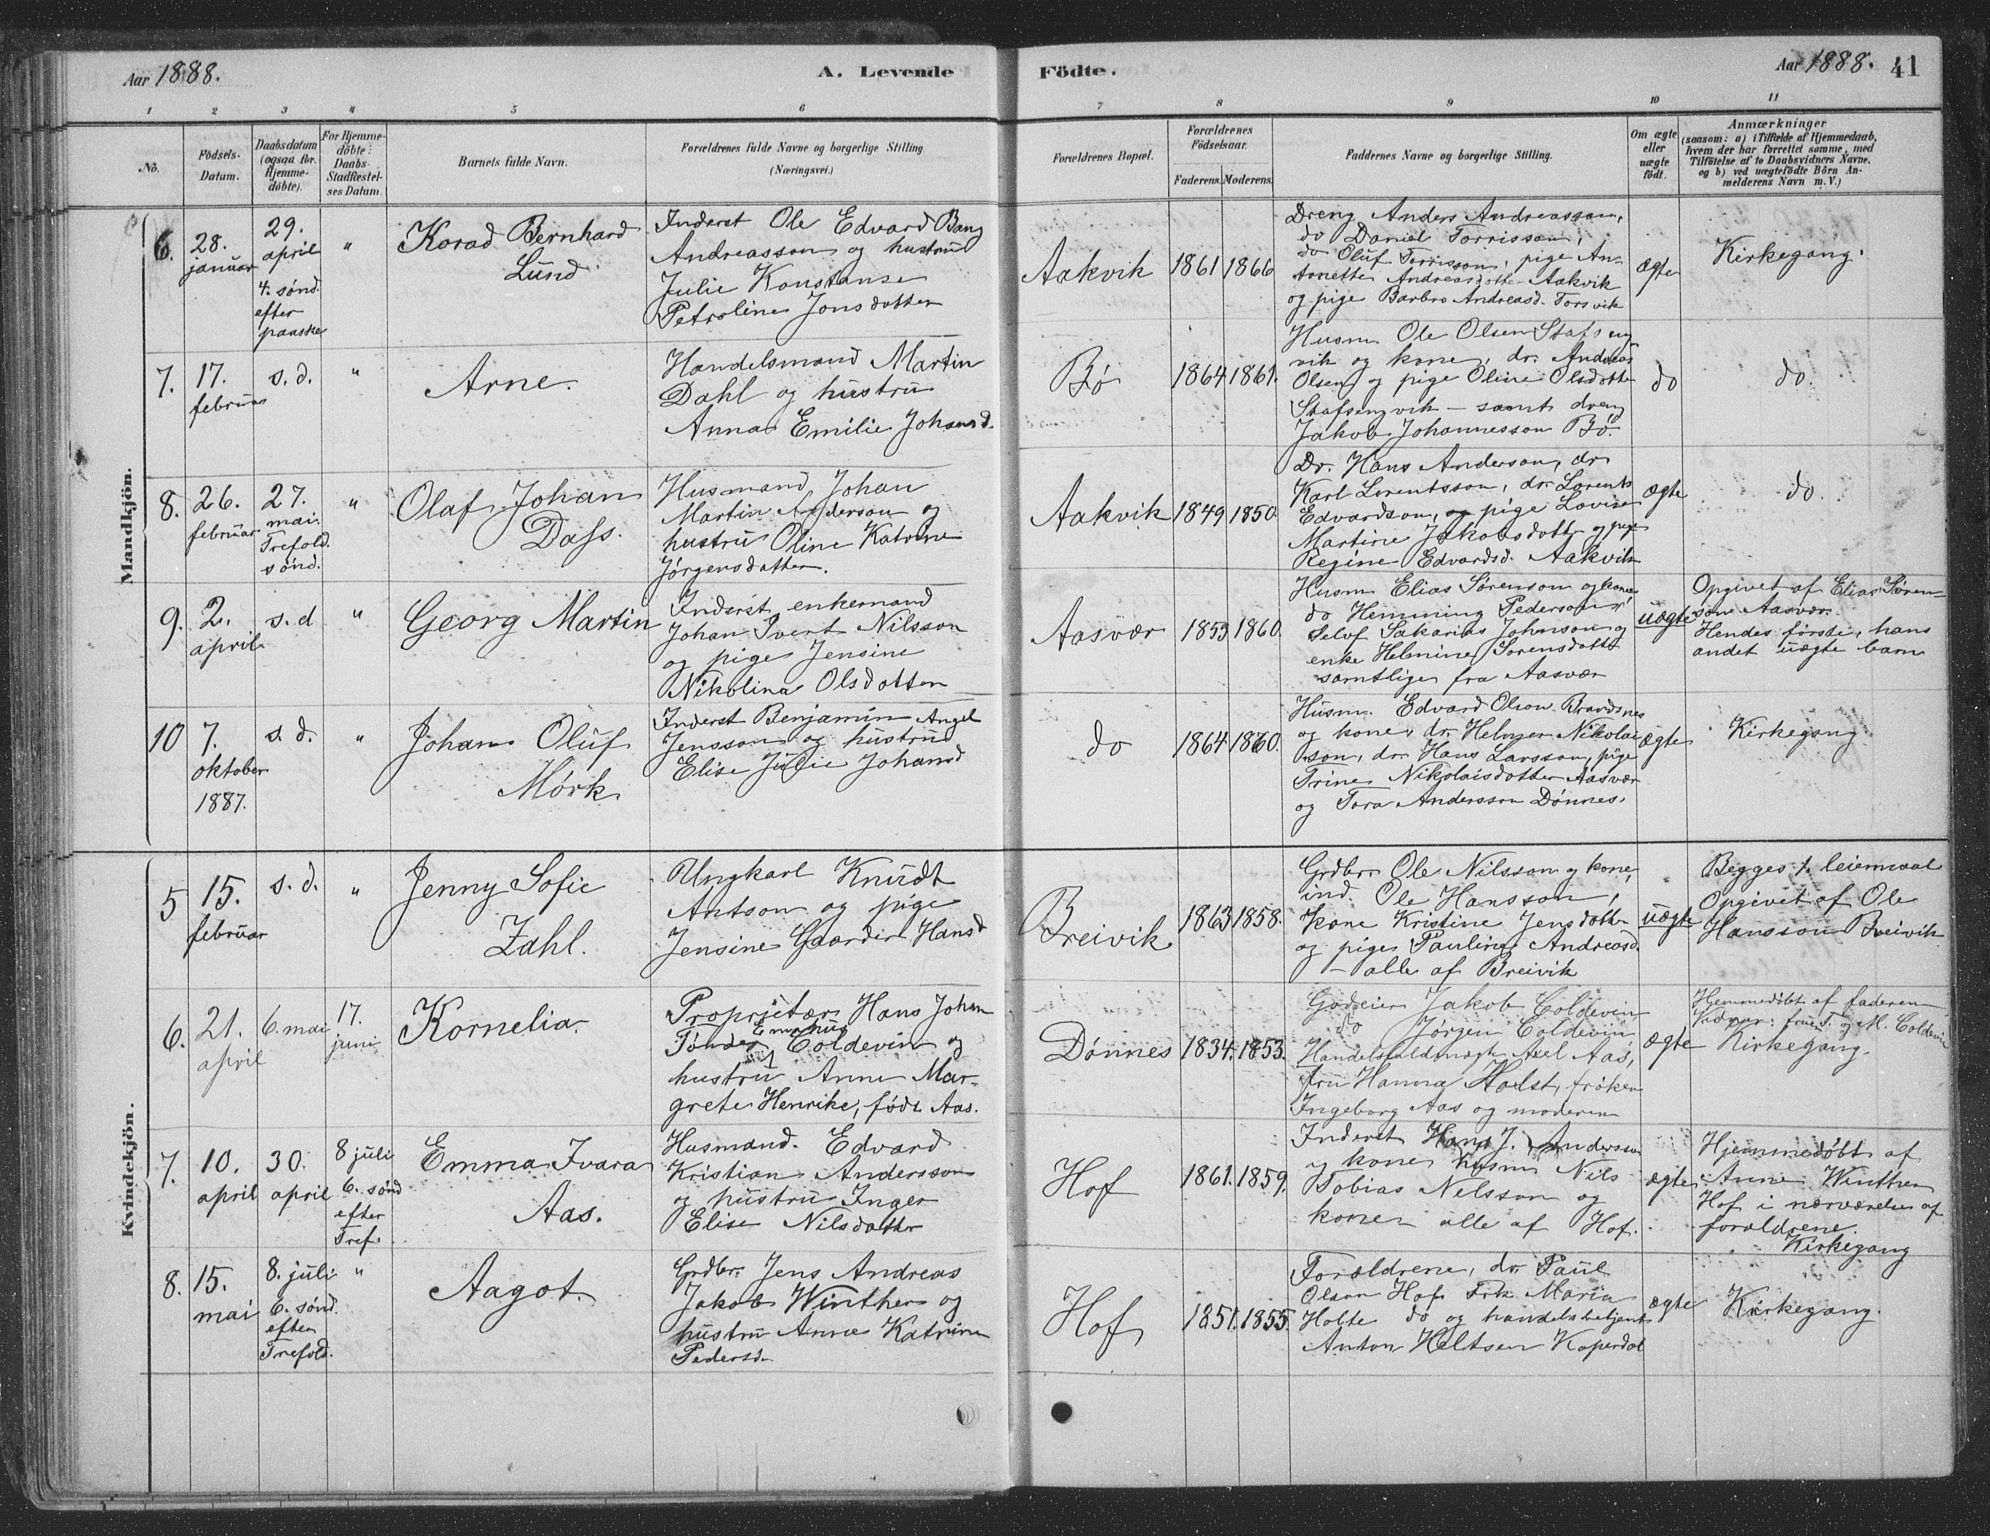 Aar 1888.
A. Levende
Födte.
Aar 1888.
41
1 2 3 4 5 6 7 8 9 10 11
No.
Födsels-
Datum.
Daabsdatum
(ogsaa for
Hjemme-
döbte).
For Hjemme-
döbte:
Daabs-
Stadfæstel-
ses Datum.
Barnets fulde Navn.
Forældrenes fulde Navne og borgerlige Stilling
(Næringsvei.)
Forældrenes Bopæl.
Forældrenes
Födselsaar.
Faderens. Moderens.
Faddernes Navne og borgerlige Stilling.
Om ægte
eller
uægte
födt.
Anmærkninger
(saasom: a) i Tilfælde af Hjemmedaab,
hvem der har forrettet samme, med
Tilföielse af to Daabsvidners Navne,
og b) ved uægtefödte Börn An-
melderens Navn m. V.)
Mandkjön.
6.
28.
januar
29.
april
4. sønd.
efter
paaske
"
Korad Bernhard
Lund
Inderst Ole Edvard Bang
Andreasson og hustru
Julie Konstanse
Petroline Jonsdatter
Aakvik
1861 1866
Dreng Anders Andreassøn,
do Daniel Torrisson,
do Oluf Torrisson, pige An-
tonette Andreasdotter Aakvik
og pige Barbro Andreasd. Torsvik
ægte
Kirkegang.
7.
17.
februar
s. d.
"
Arne.
Handelsmand Martin
Dahl og hustru
Anna Emilie Johansd.
Bø
1864 1861.
Husm Ole Olsen Stafseng
vik og kone, dr. Andreas
Olsen og pige Oline Olsdotter
Stafsengvik — samt dreng
Jakob Johannesson Bø.
do
do.
8.
26.
februar
27.
mai.
Trefold.
sønd.
"
Olaf Johan
Dass.
Husmand Johan
Martin Anderson og
hustru Oline Katrine
Jørgensdatter.
Aakvik
1849 1850.
Dr. Hans Anderson, dr
Karl Lorentsson, dr Lorents
Edvardson, og pige Lovise
Martine Jakobsdotter og pige
Regine Edvardsd. Aakvik
ægte
do.
9.
2.
april
s. d
"
Georg Martin
Inderst, enkemand
Johan Ivert Nilsson
og pige Jensine
Nikolina Olsdotter
Aasvær
1853 1860.
Husm Elias Sørenson og kone
do Hemming Pederson,
Selvf Sakarias Johnson og
enke Helmine Sorensdotter
samtlige fra Aasvær
uægte
Opgivet af Elias Søren-
son Aasvær.
Hendes første, hans
andet uægte barn
10
7.
oktober
1887.
s. d.
"
Johan Oluf
Mørk
Inderst Benjamin Angel
Jensson og hustru
Elise Julie Johansd
do
1864 1860.
Husm. Edvard Olson Brandsnes
og kone, dr. Helmer Nikolai
son, dr. Hans Larsson, pige
Trine Nikolaisdotter Aasvær
og Tora Andersson Dønnes.
ægte
Kirkegang
Kvindekjön.
5
15.
februar
s. d.
"
Jenny Sofie
Zahl.
Ungkarl Knudt
Antson og pige
Jensine Gaarder Hansd
Breivik
1863 1858.
Grdbr Ole Nilsson og kone,
ind. Ole Hansson,
Kone Kristine Jensdotter
og pige Pauline Andreasd.
— alle af Breivik
uægte
Begges 1. leiermaal
Opgivet af Ole
Hansson Breivik
6.
21.
april
6. mai
17.
juni
Kornelia.
Proprietær Hans Johan
Tønder Coldevin og
hustru Anne Mar-
grete Henrike, født Aas.
Dønnes
1834. 1853.
Godeier Jakob Coldevin
do Jørgen Coldevin
Handelsfuldmægt Axel Aas,
fru Hanna Holst, frøken
Ingeborg Aas og moderen
ægte
Hjemmedøbt af faderen
Vidner: frue T. og M. Coldevin
Kirkegang.
7.
10.
april
30.
april
8 juli
6. sønd
efter
Tref.
Emma Ivara
Aas.
Husmand. Edvard
Kristian Andersson
og hustru Inger
Elise Nilsdatter
Hof
1861. 1859.
Inderst Hans J. Andersson
og kone husm Nils
Tobias Nelsson og
kone alle af Hof.
ægte
Hjemmedøbt af
Anne Winther
Hof i nærværelse af
forældrene
Kirkegang
8.
15.
mai
8. juli
6. sønd.
efter
Trefold.
"
Aagot.
Grdbr. Jens Andreas
Jakob Winther og
hustru Anne Katrine
Pedersd
Hof
1851. 1855.
Forældrene, dr Paul
Olson Hof Frk Maria
Holte do og handelsbetjent
Anton Heltsen Koperdal
ægte
Kirkegang.